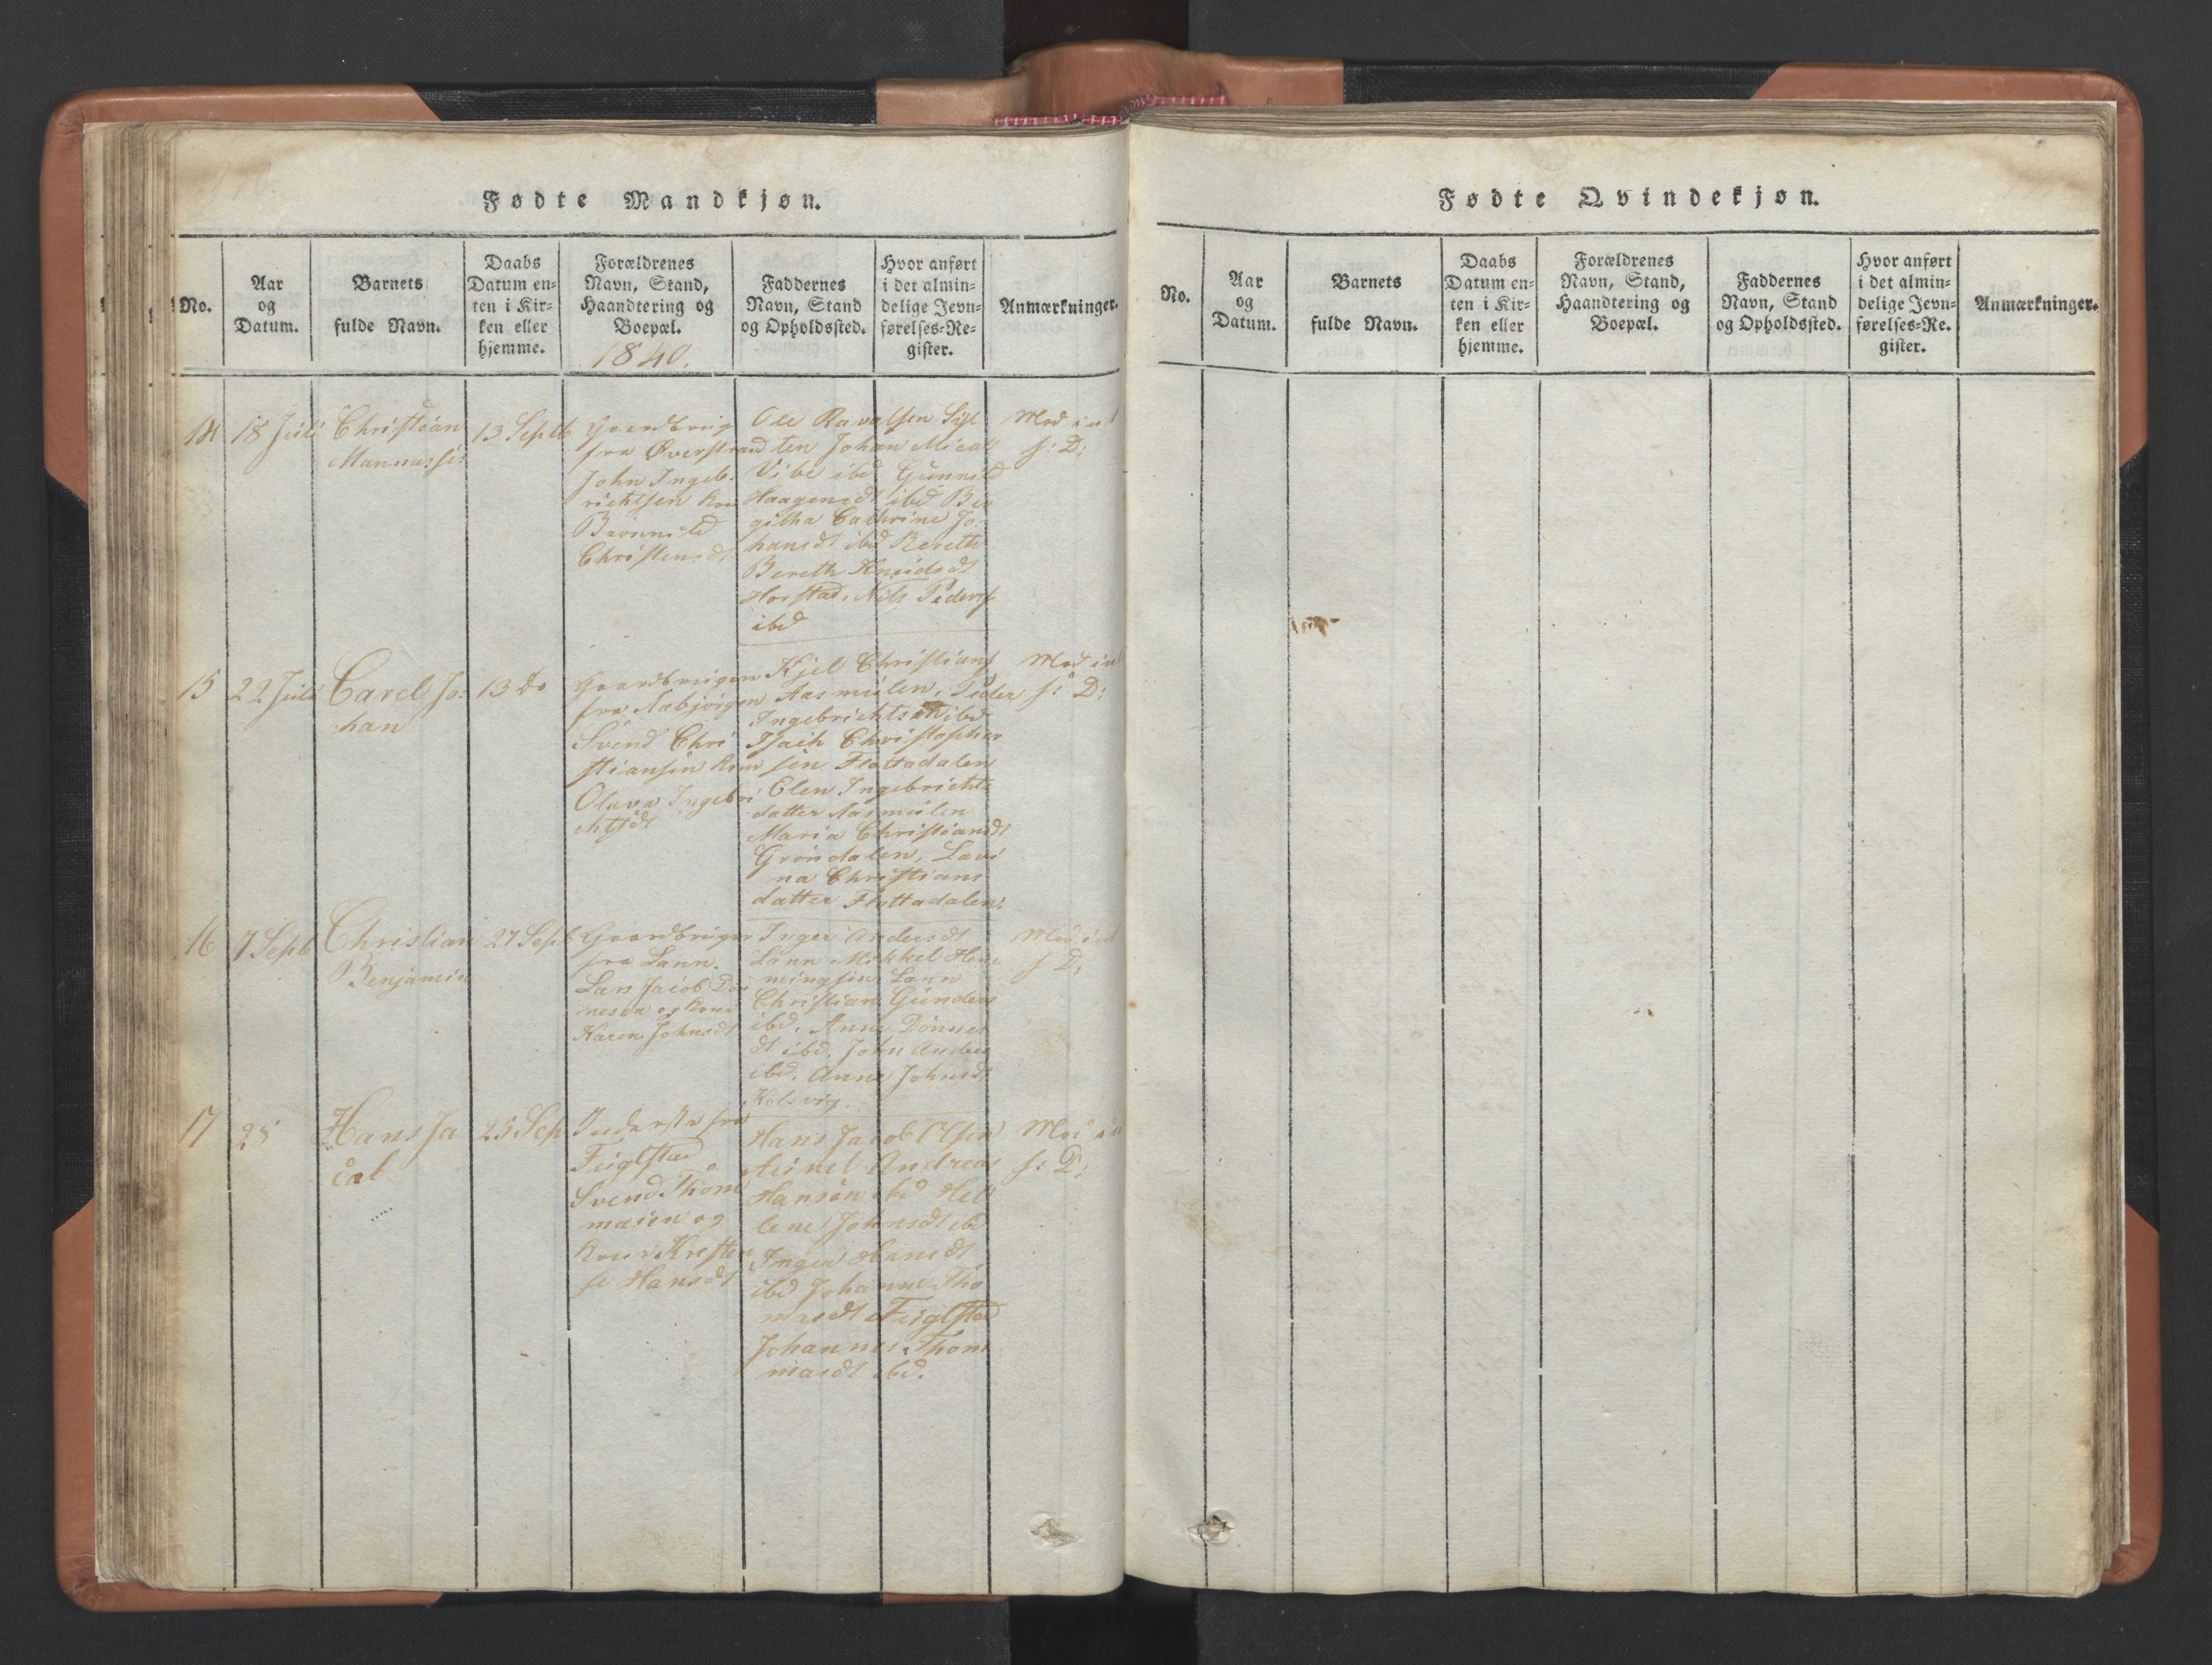 Fødte Mandkjøn.
No.
Aar
og
Datum.
Barnets
fulde Navn.
Daabs
Datum en-
ten i Kir-
ken eller
hjemme.
Forældrenes
Navn, Stand,
Haandtering og
Boepæl.
1840.
Faddernes
Navn, Stand
og Opholdssted.
Hvor anført
i det almin-
delige Jevn-
førelses-Re-
gister.
Anmærkninger.
14
18 Juli
Christian
Mannasse
13 Septb
fra Øverstrand
John Ingeb-
richtsen
Christensdt
Ole
Johan Mical
Vibe ibd Gunnild
Haagensdt ibd Ber
githa Cathrine Jo-
hansdt ibd Bereth
Bereth Knudsdt
Horstad, Nils Peders
ibd
15
22 Juli
Carel Jo-
han
13 do
Svend Chri
stiansen
Oluva Ingebri
chtsdt
Kjel Christians
Aasmulen, Peder
Ingebrichtsen ibd
Isach Christopher
sen Flottadalen
Elen Ingebrichts
datter Aasmulen
Maria Christiansdt
Grøndalen, Lavi
na Christians
datter Flottadalen
f: D:
16
7 Septb
Christian
Benjamin
27 Septb
Gaardbruger
fra Lann.
Lars Jacob Døn
nesen og Kone
Karen Johnsdt
Inger Andersdt
Lann Mikkel Hen
mingsen Lann
Christian Gunders
ibd. Anne Dønnes
dt ibd. John Anders
ibd. Anne Johnsdt
Kolsvig.
17
25
Hans Ja
cob
25 Sep
Inderste fra
Fuglstad
Svend Thom
masen og
Kone Kresten
se Hansdt
Hans Jacob Olsen
Andreas
Hansen ibd Hel
lene Johnsdt ibd
Inger Hansdt
ibd Johanne Tho
masdt Fuglstad
Johannes Thom
masdt ibd.
f: D:
Fødte Qvindekjøn.
No.
Aar
og
Datum.
Barnets
fulde Navn.
Daabs
Datum en-
ten i Kir-
ken eller
hjemme.
Forældrenes
Navn, Stand,
Haandtering og
Boepæl.
Faddernes
Navn, Stand
og Opholdssted.
Hvor anført
i det almin-
delige Jevn-
førelses-Re.
gister.
Anmærkninger.